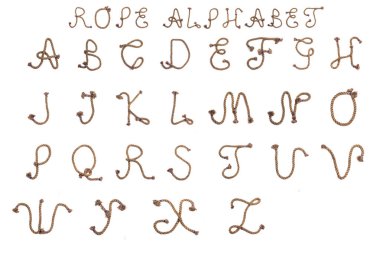 ROPE ALPHABET
A B C D E F G H
I J K L M N O
P Q R S T U V
W Y X Z